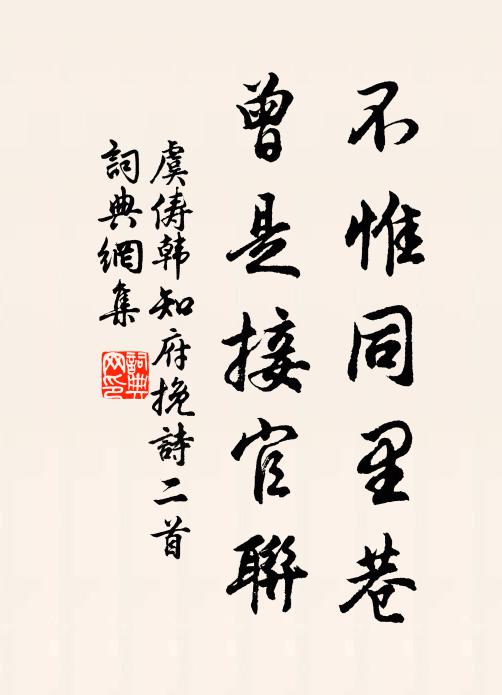 不惟同里巷
曾是接官聯
虞儔韓知府挽詩二首
詞典網集
詞典網印